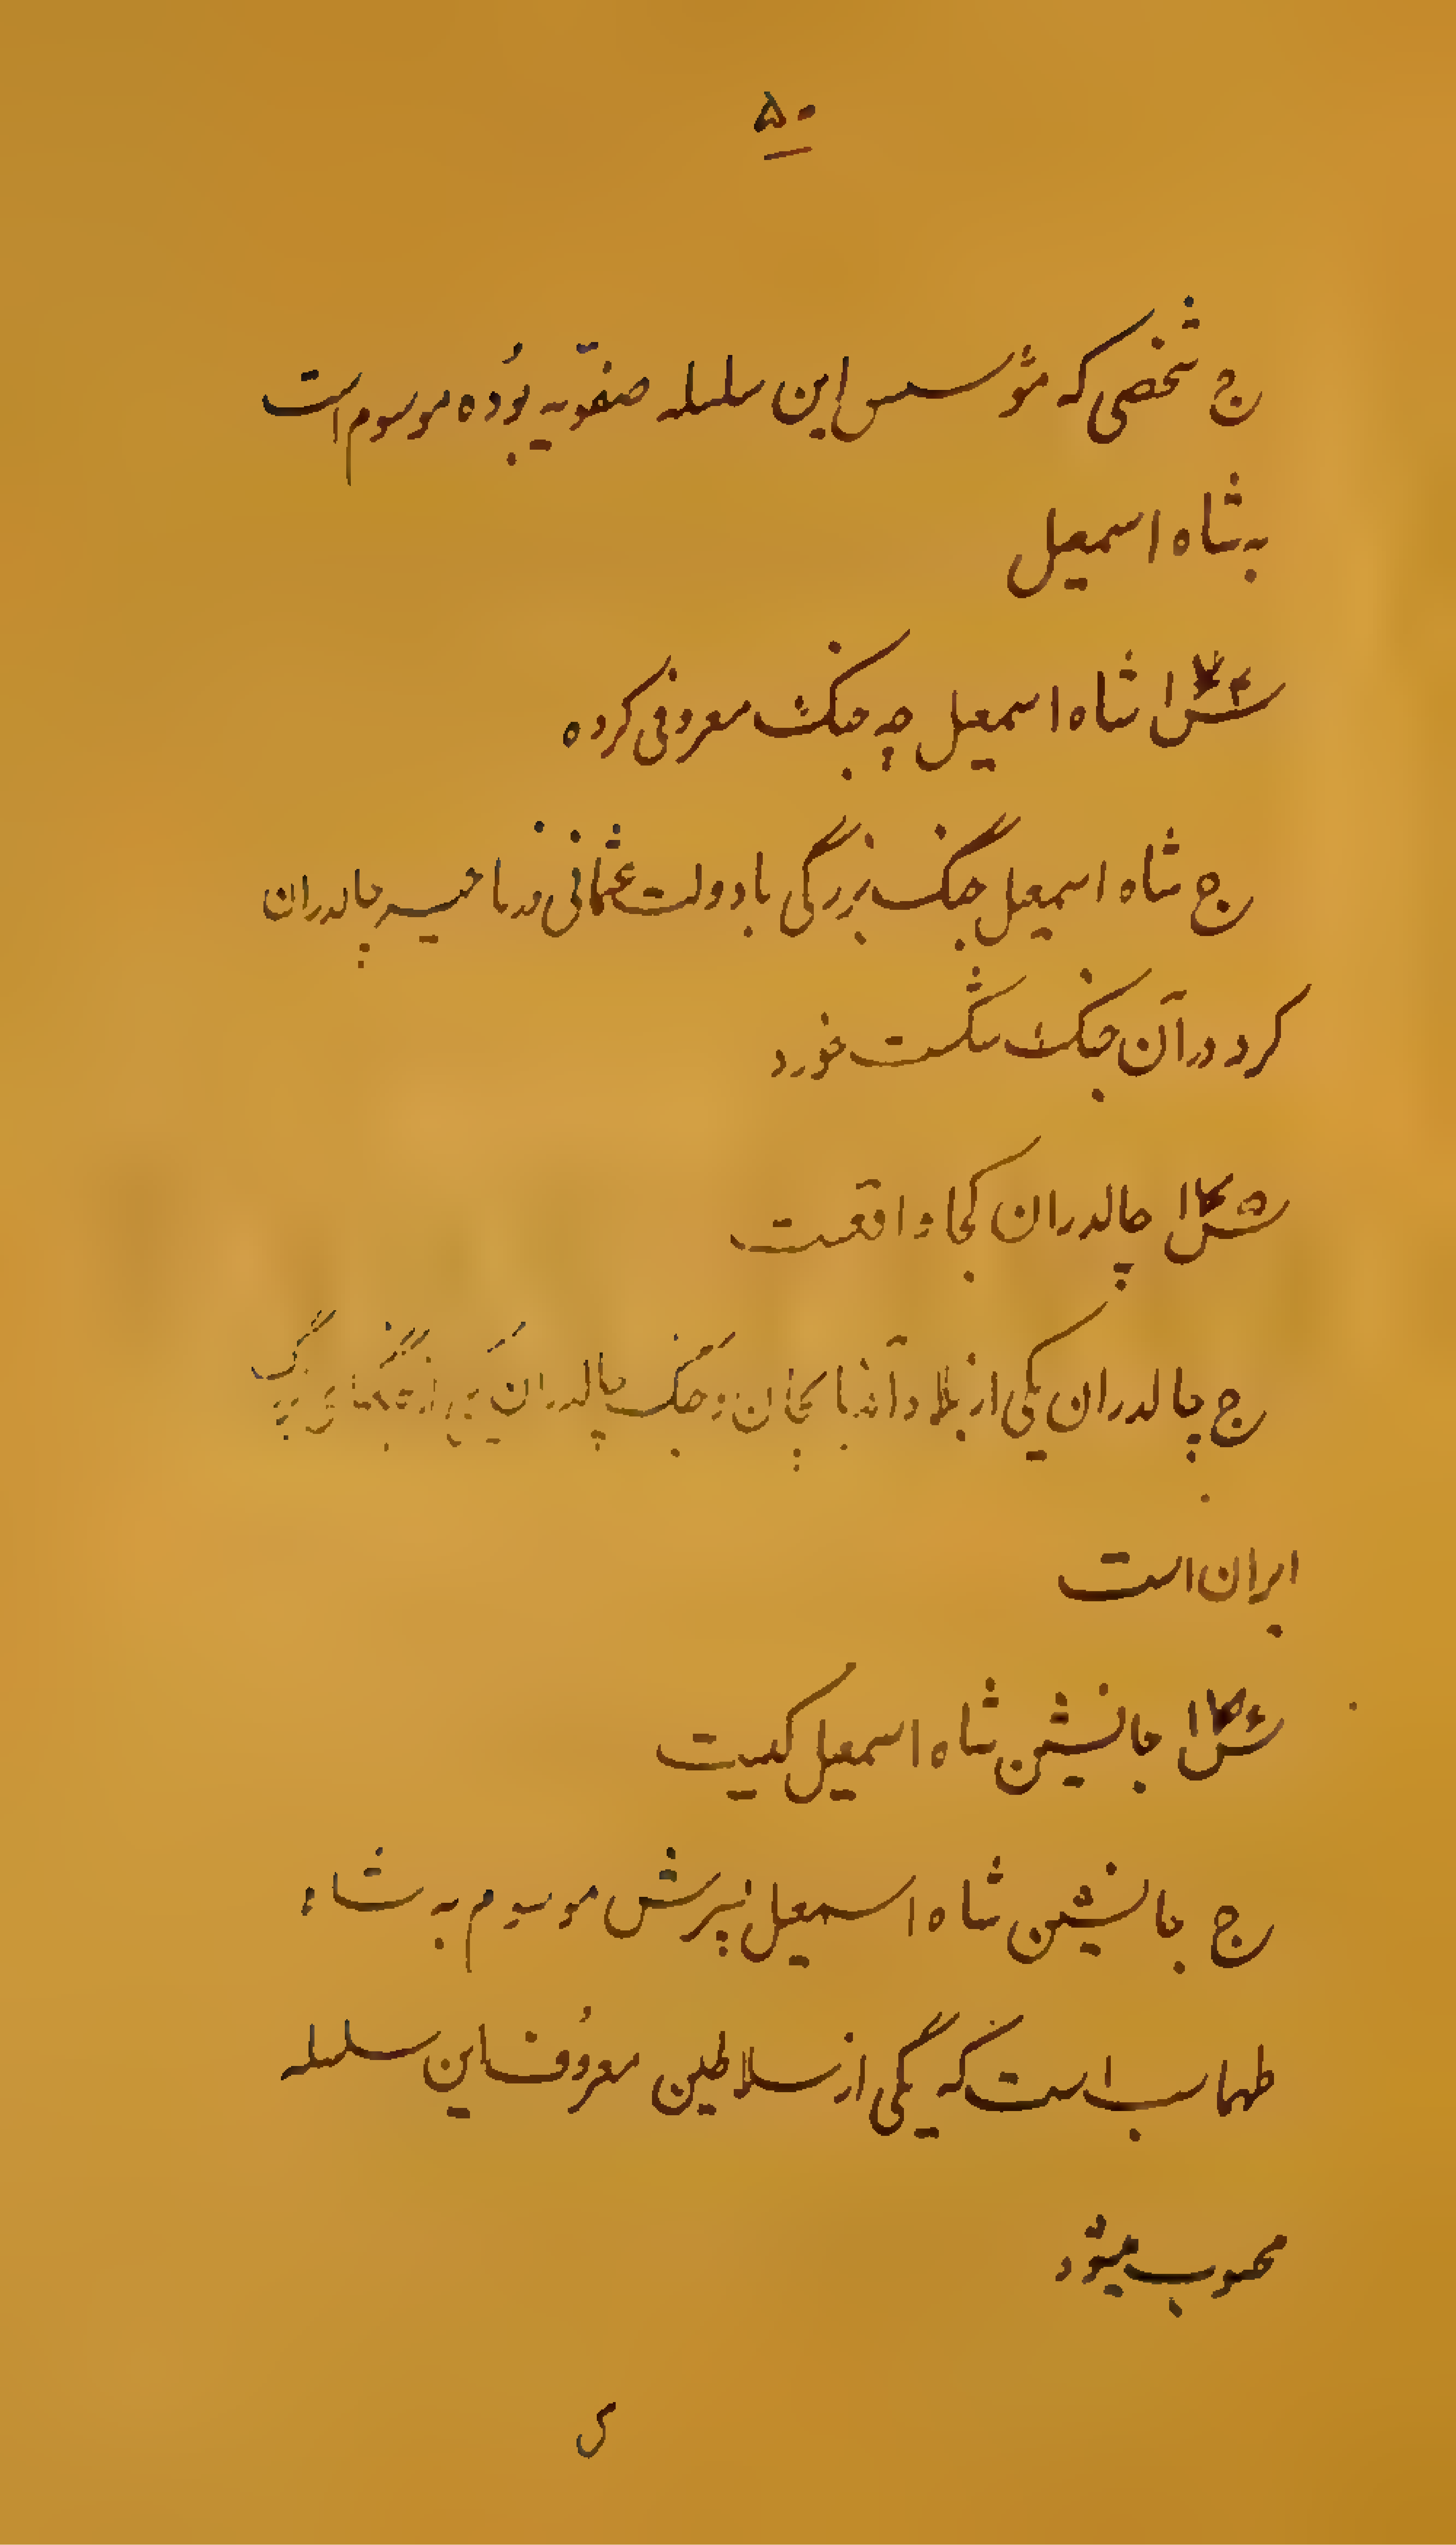 ۵۰
ج شخصی که مؤسس این سلسله صفّویه بوُده موسوم است
به شاه اسمعیل
س شاه اسمعیل چه جنک معروفی کرده
ج شاه اسمعیل جنگ بزرگی با دولت عثمانی در ناحیه چالدران
کرد در آن جنک شکست خورد
س چالدران کجا واقعست
ج چالدران یکی از بلاد آذربایجان و جنک چالدران یکی از جنگهای بزرگ
ایران است
س جانشین شاه اسمعیل کیست
ج جانشین شاه اسمعیل پسرش موسوم به شاه
طهماسب است که یگی از سلاطین معروُف این سلسله
محسوب میشود
س